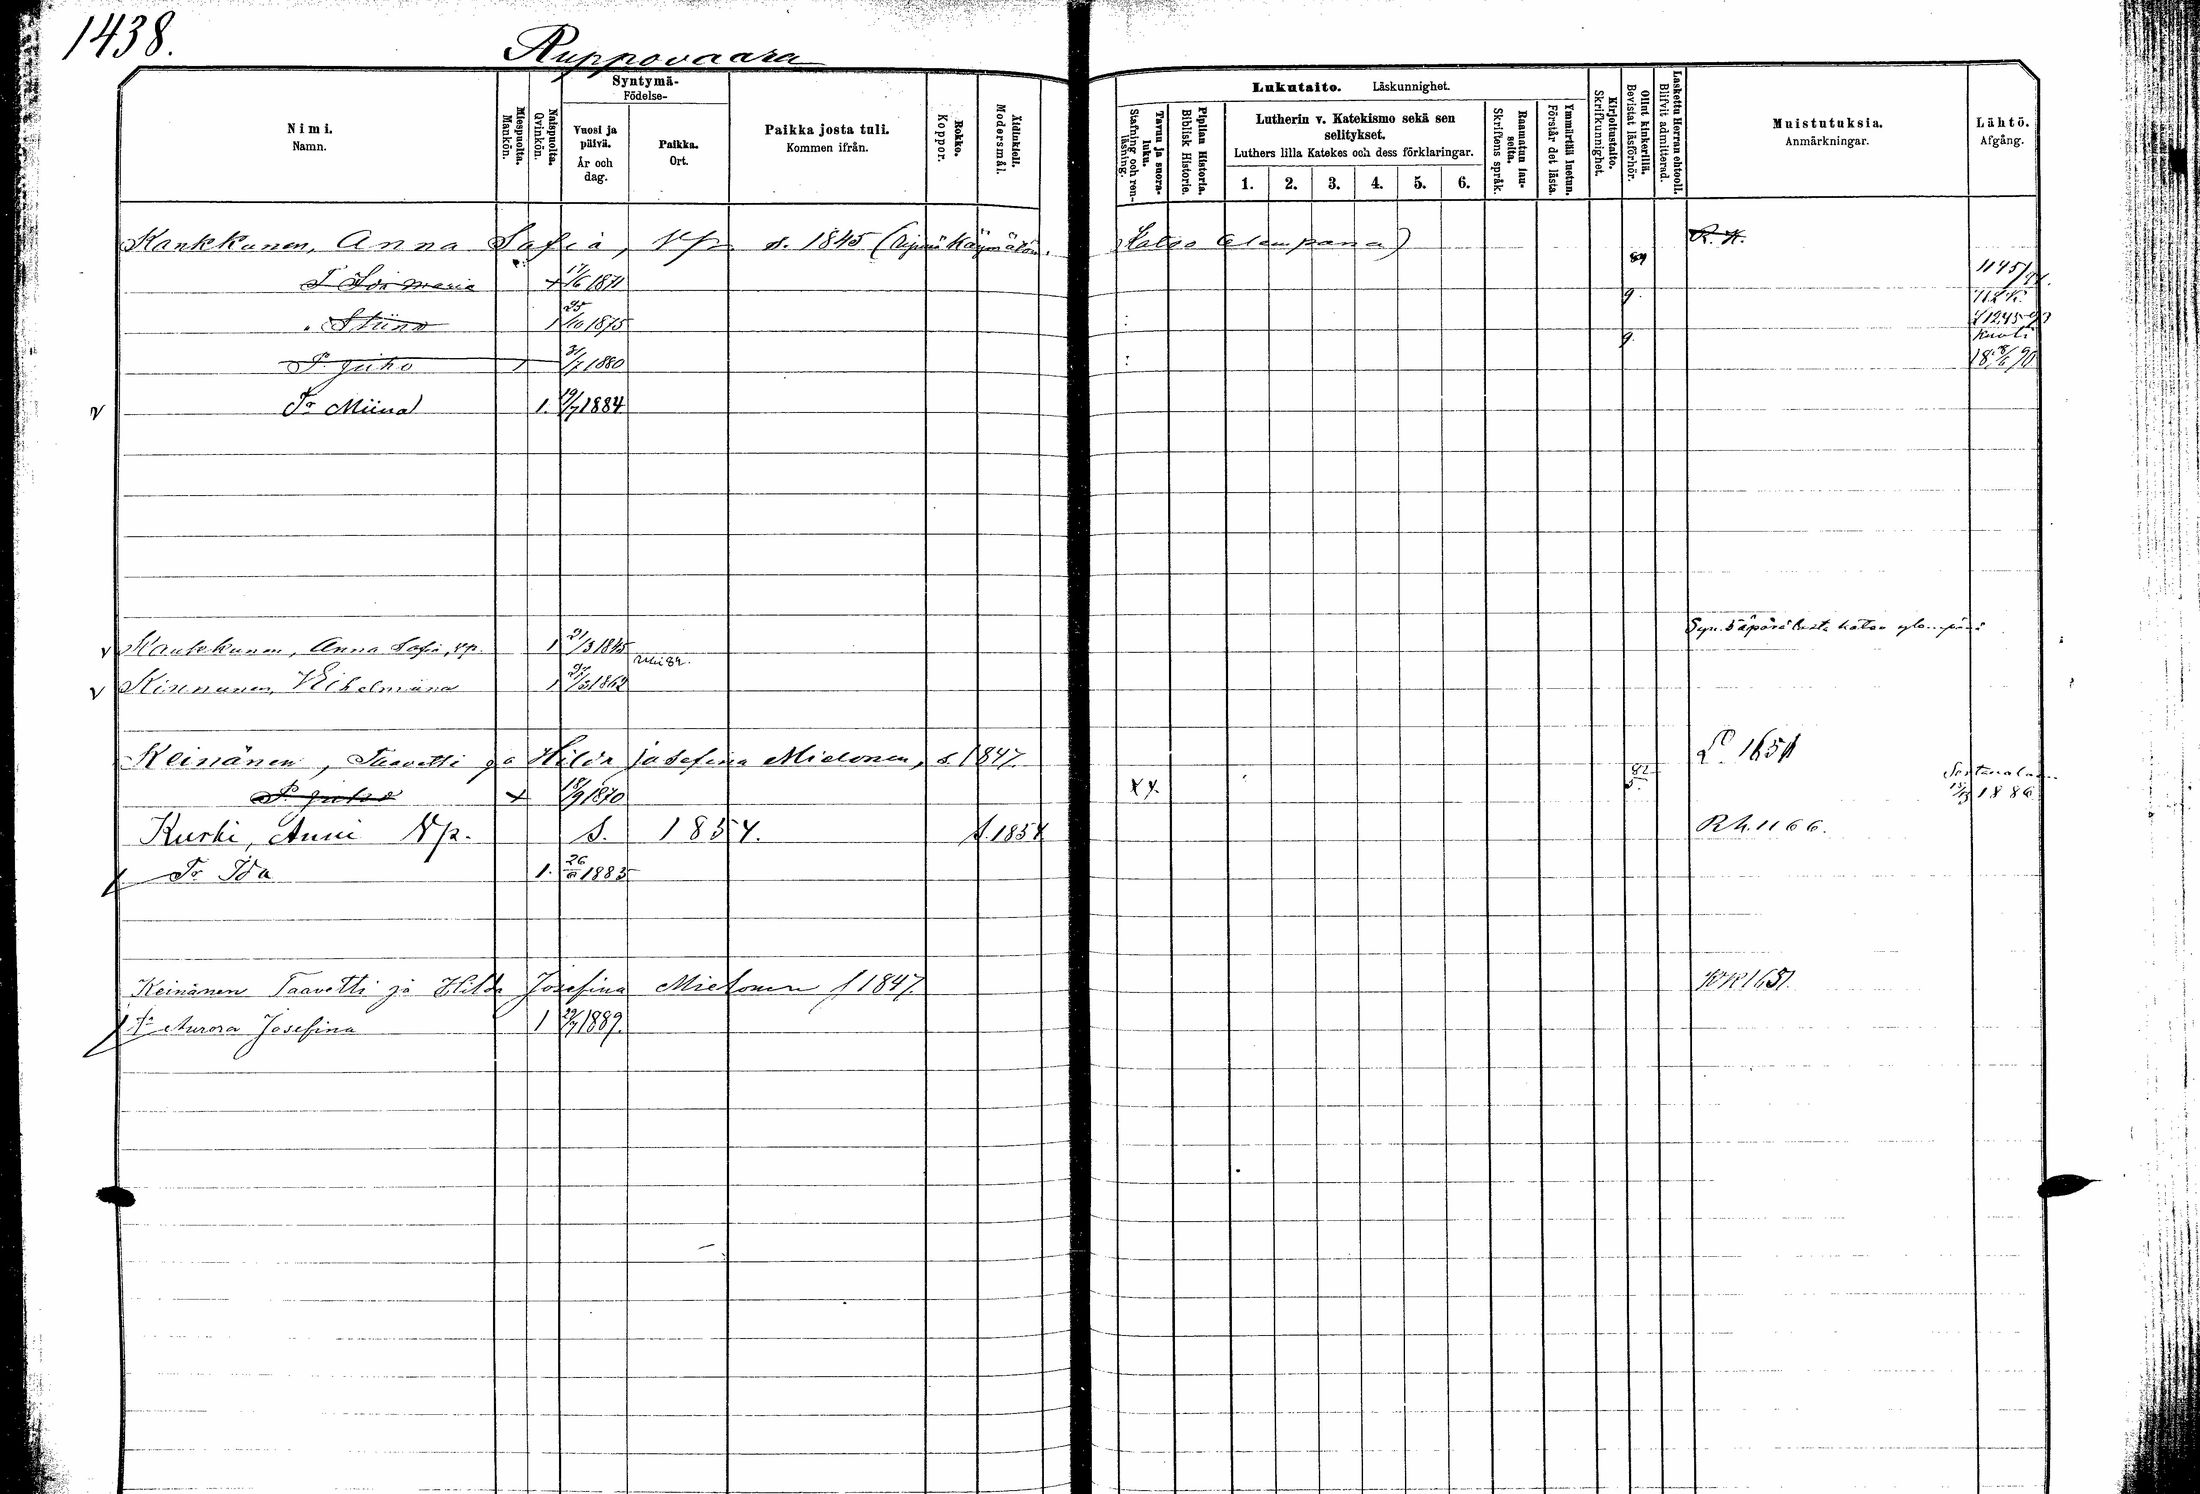 1438.
Ruppovaara
Nimi.
Namn.
Miespuolta.
Mankön.
Naispuolta.
Qvinkön.
Syntymä-
Födelse-
Vuosi ja päivä.
År och dag.
Paikka.
Ort.
Paikka josta tuli.
Kommen ifrån.
Rokko.
Koppor.
Äidinkieli.
Modersmål.
Lukutaito. Läskunnighet.
Tavuu ja suora-luku.
Stafning och ren-läsning.
Piplian Historia.
Biblisk Historie.
Lutherin v. Katekismo sekä sen selitykset.
Luthers lilla Katekes och dess förklaringar.
1. 2. 3. 4. 5. 6.
Raamatun lau-seita.
Skriftens språk.
Ymmärtää luetun.
Förstår det lästa.
Kirjoitustaito.
Skrifkunnighet.
Ollut kinkerillä.
Bevistat läsförhör.
Laskettu Herran ehtooll.
Blifvit admitterad.
Muistutuksia.
Anmärkningar.
Lähtö.
Afgång.
Kankkunen, Anna Sofia, Np s. 1845 (ripiä käymätön. Katso alempana) R. K.
T Ida Maria 17/6 1871 89 1145/91.
" Stiina 1 25/10 1875 9.
P. Juho 31/7 1880 9. Kuoli 18 8/6 90
Tr Miina 1. 19/7 1884
Kankkunen, Anna Sofia, np. 1 21/3 1845
Kinnunen, Vilhelmiina 1 27/3 1862
Keinänen, Taavetti ja Hilda Josefina Mielonen, s. 1847. 1651
P. Juho 18/9 1870 XX 82 1886
Kurki, Anni Np. S. 1854. S. 1854 Rk. 1166.
Tr Ida 1. 26 1883
Keinänen Taavetti ja Hilda Josefina Mielonen s 1847. RK 1651.
Tr Aurora Josefina 1 29/7 1889.